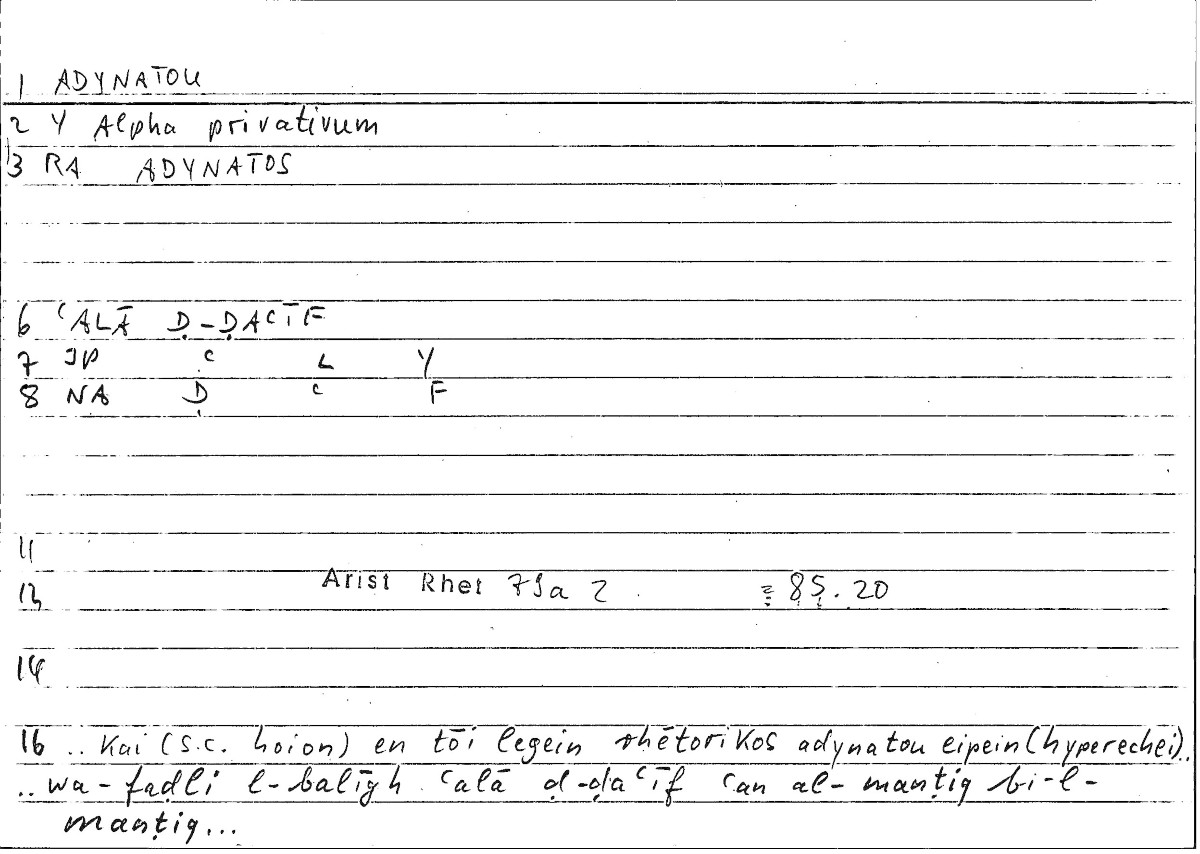 1 ADYNATOU
2 Y Alpha privativum
3 RA ADYNATOS
6 ʿALĀ Ḍ-ḌAʿĪF
7 IP ʿ L Y
8 NA Ḍ ʿ F
11
12 Arist Rhet 79a 2 = 85.20
14
16 .. Kai (s.c. hoion) en tōi legein rhētorikos adynatou eipein (hyperechei)..
.. wa-faḍli l-balīgh ʿalā ḍ-ḍaʿīf ʿan al-manṭiq bi-l-
manṭiq...